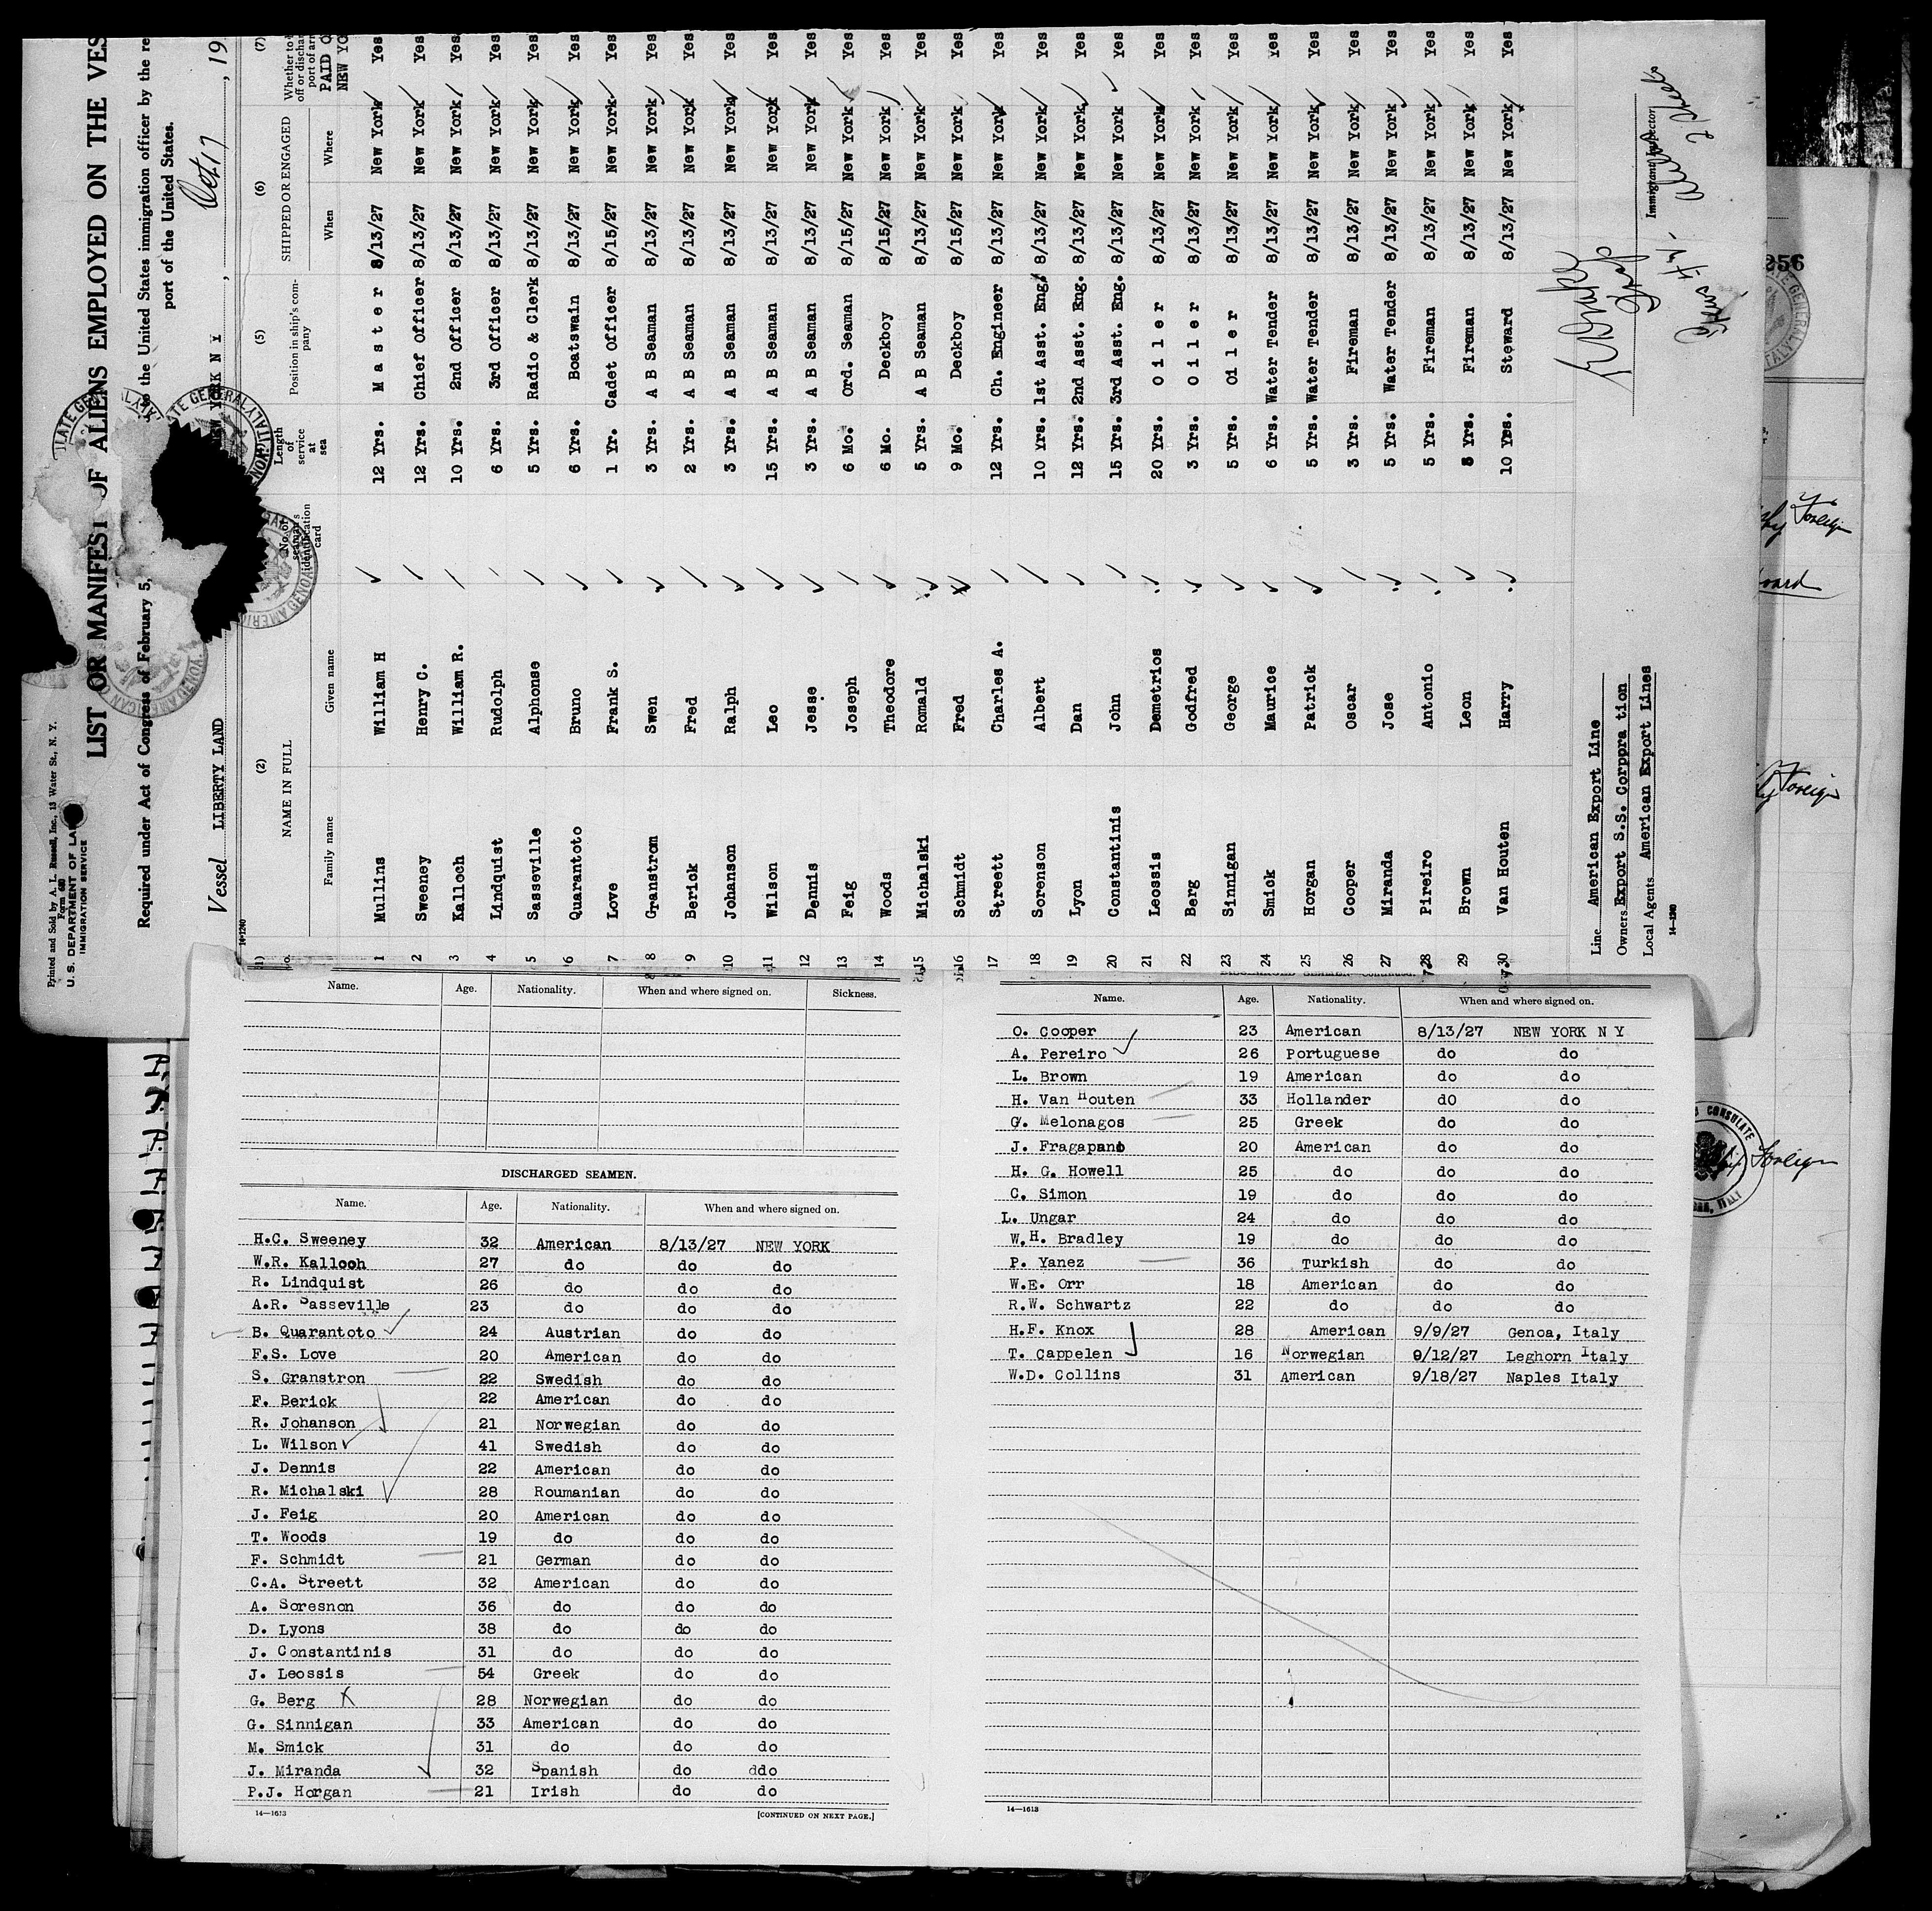 Printed and Sold by A. L. Russell, Inc., 13 Water St., N. Y.
Form 680
U. S. DEPARTMENT OF LA
IMMIGRATION SERVICE
LIST OR MANIFEST OF ALIENS EMPLOYED ON THE VES
Required under Act of Congress of February 5, to the United States immigration officer by the re
port of the United States.
Vessel LIBERTY LAND NEW YORK N Y , Oct 17 , 19
14-1240
(1) (2) (5) (6) (7)
NAME IN FULL No. of seaman's identification card Length of service at sea Position in ship's company SHIPPED OR ENGAGED Whether to off or dischar port of arr
Family name Given name When Where PAID O NEW YO
1 Mullins William H 12 Yrs. M a s t e r 8/13/27 New York Yes
2 Sweeney Henry C. 12 Yrs. Chief Officer 8/13/27 New York Yes
3 Kalloch William R. 10 Yrs. 2nd Officer 8/13/27 New York Yes
4 Lindquist Rudolph 6 Yrs. 3rd Officer 8/13/27 New York Yes
5 Sasseville Alphonse 5 Yrs. Radio & Clerk 8/13/27 New York Yes
6 Quarantoto Bruno 6 Yrs. Boatswain 8/13/27 New York Yes
7 Love Frank S. 1 Yr. Cadet Officer 8/15/27 New York Yes
8 Granstrom Swen 3 Yrs. A B Seaman 8/13/27 New York Yes
9 Berick Fred 2 Yrs. A B Seaman 8/13/27 New York Yes
10 Johanson Ralph 3 Yrs. A B Seaman 8/13/27 New York Yes
11 Wilson Leo 15 Yrs. A B Seaman 8/13/27 New York Yes
12 Dennis Jesse 3 Yrs. A B Seaman 8/13/27 New York Yes
13 Feig Joseph 6 Mo. Ord. Seaman 8/15/27 New York Yes
14 Woods Theodore 6 Mo. Deckboy 8/15/27 New York Yes
15 Michalski Romald 5 Yrs. A B Seaman 8/13/27 New York Yes
16 Schmidt Fred 9 Mo. Deckboy 8/15/27 New York Yes
17 Streett Charles A. 12 Yrs. Ch. Engineer 8/13/27 New York Yes
18 Sorenson Albert 10 Yrs. 1st Asst. Eng. 8/13/27 New York Yes
19 Lyon Dan 12 Yrs. 2nd Asst. Eng. 8/13/27 New York Yes
20 Constantinis John 15 Yrs. 3rd Asst. Eng. 8/13/27 New York Yes
21 Leossis Demetrios 20 Yrs. O i l e r 8/13/27 New York Yes
22 Berg Godfred 3 Yrs. O i l e r 8/13/27 New York Yes
23 Sinnigan George 5 Yrs. Oi l e r 8/13/27 New York Yes
24 Smick Maurice 6 Yrs. Water Tender 8/13/27 New York Yes
25 Horgan Patrick 5 Yrs. Water Tender 8/13/27 New York Yes
26 Cooper Oscar 3 Yrs. Fireman 8/13/27 New York Yes
27 Miranda Jose 5 Yrs. Water Tender 8/13/27 New York Yes
28 Pireiro Antonio 5 Yrs. Fireman 8/13/27 New York Yes
29 Brown Leon 8 Yrs. Fireman 8/13/27 New York Yes
30 Van Houten Harry 10 Yrs. Steward 8/13/27 New York Yes
Line American Export Line
Owners Export S.S. Corppra tion
Local Agents American Export Lines
14-1240
Immigrant Inspector
Name. Age. Nationality. When and where signed on. Sickness.
DISCHARGED SEAMEN.
Name. Age. Nationality. When and where signed on.
H.C. Sweeney 32 American 8/13/27 NEW YORK
W.R. Kalloch 27 do do do
R. Lindquist 26 do do do
A.R. Sasseville 23 do do do
B. Quarantoto 24 Austrian do do
F.S. Love 20 American do do
S. Granstron 22 Swedish do do
F. Berick 22 American do do
R. Johanson 21 Norwegian do do
L. Wilson 41 Swedish do do
J. Dennis 22 American do do
R. Michalski 28 Roumanian do do
J. Feig 20 American do do
T. Woods 19 do do do
F. Schmidt 21 German do do
C.A. Streett 32 American do do
A. Soresnon 36 do do do
D. Lyons 38 do do do
J. Constantinis 31 do do do
J. Leossis 54 Greek do do
G. Berg 28 Norwegian do do
G. Sinnigan 33 American do do
M. Smick 31 do do do
J. Miranda 32 Spanish do ddo
P.J. Horgan 21 Irish do do
14—1613 [CONTINUED ON NEXT PAGE.]
Name. Age. Nationality. When and where signed on.
O. Cooper 23 American 8/13/27 NEW YORK N Y
A. Pereiro 26 Portuguese do do
L. Brown 19 American do do
H. Van Houten 33 Hollander d0 do
G. Melonagos 25 Greek do do
J. Fragapano 20 American do do
H. G. Howell 25 do do do
C. Simon 19 do do do
L. Ungar 24 do do do
W.H. Bradley 19 do do do
P. Yanez 36 Turkish do do
W.E. Orr 18 American do do
R.W. Schwartz 22 do do do
H.F. Knox 28 American 9/9/27 Genoa, Italy
T. Cappelen 16 Norwegian 9/12/27 Leghorn Italy
W.D. Collins 31 American 9/18/27 Naples Italy
14—1613
256
Foreign
Foreign
CONSULATE
Foreign